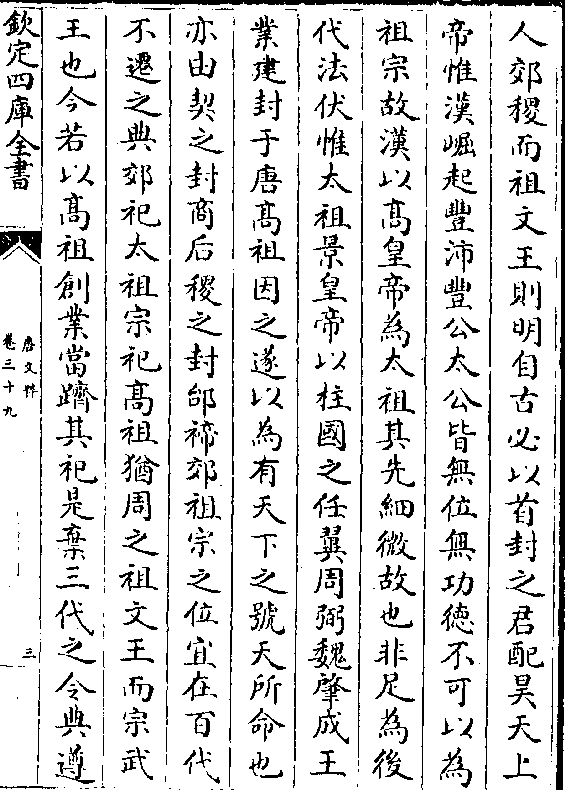 人郊稷而祖文王則明自古必以首封之君配昊天上
帝惟漢崛起豐沛豐公太公皆無位無功德不可以為
祖宗故漢以髙皇帝為太祖其先細微故也非足為後
代法伏惟太祖景皇帝以柱國之任翼周弼魏肈成王
業建封于唐髙祖因之遂以為有天下之號天所命也
亦由契之封商后稷之封邰禘郊祖宗之位宜在百代
不遷之典郊祀太祖宗祀髙祖猶周之祖文王而宗武
王也今若以髙祖創業當躋其祀是棄三代之令典遵
欽定四庫全書
唐文粹
卷三十九
三